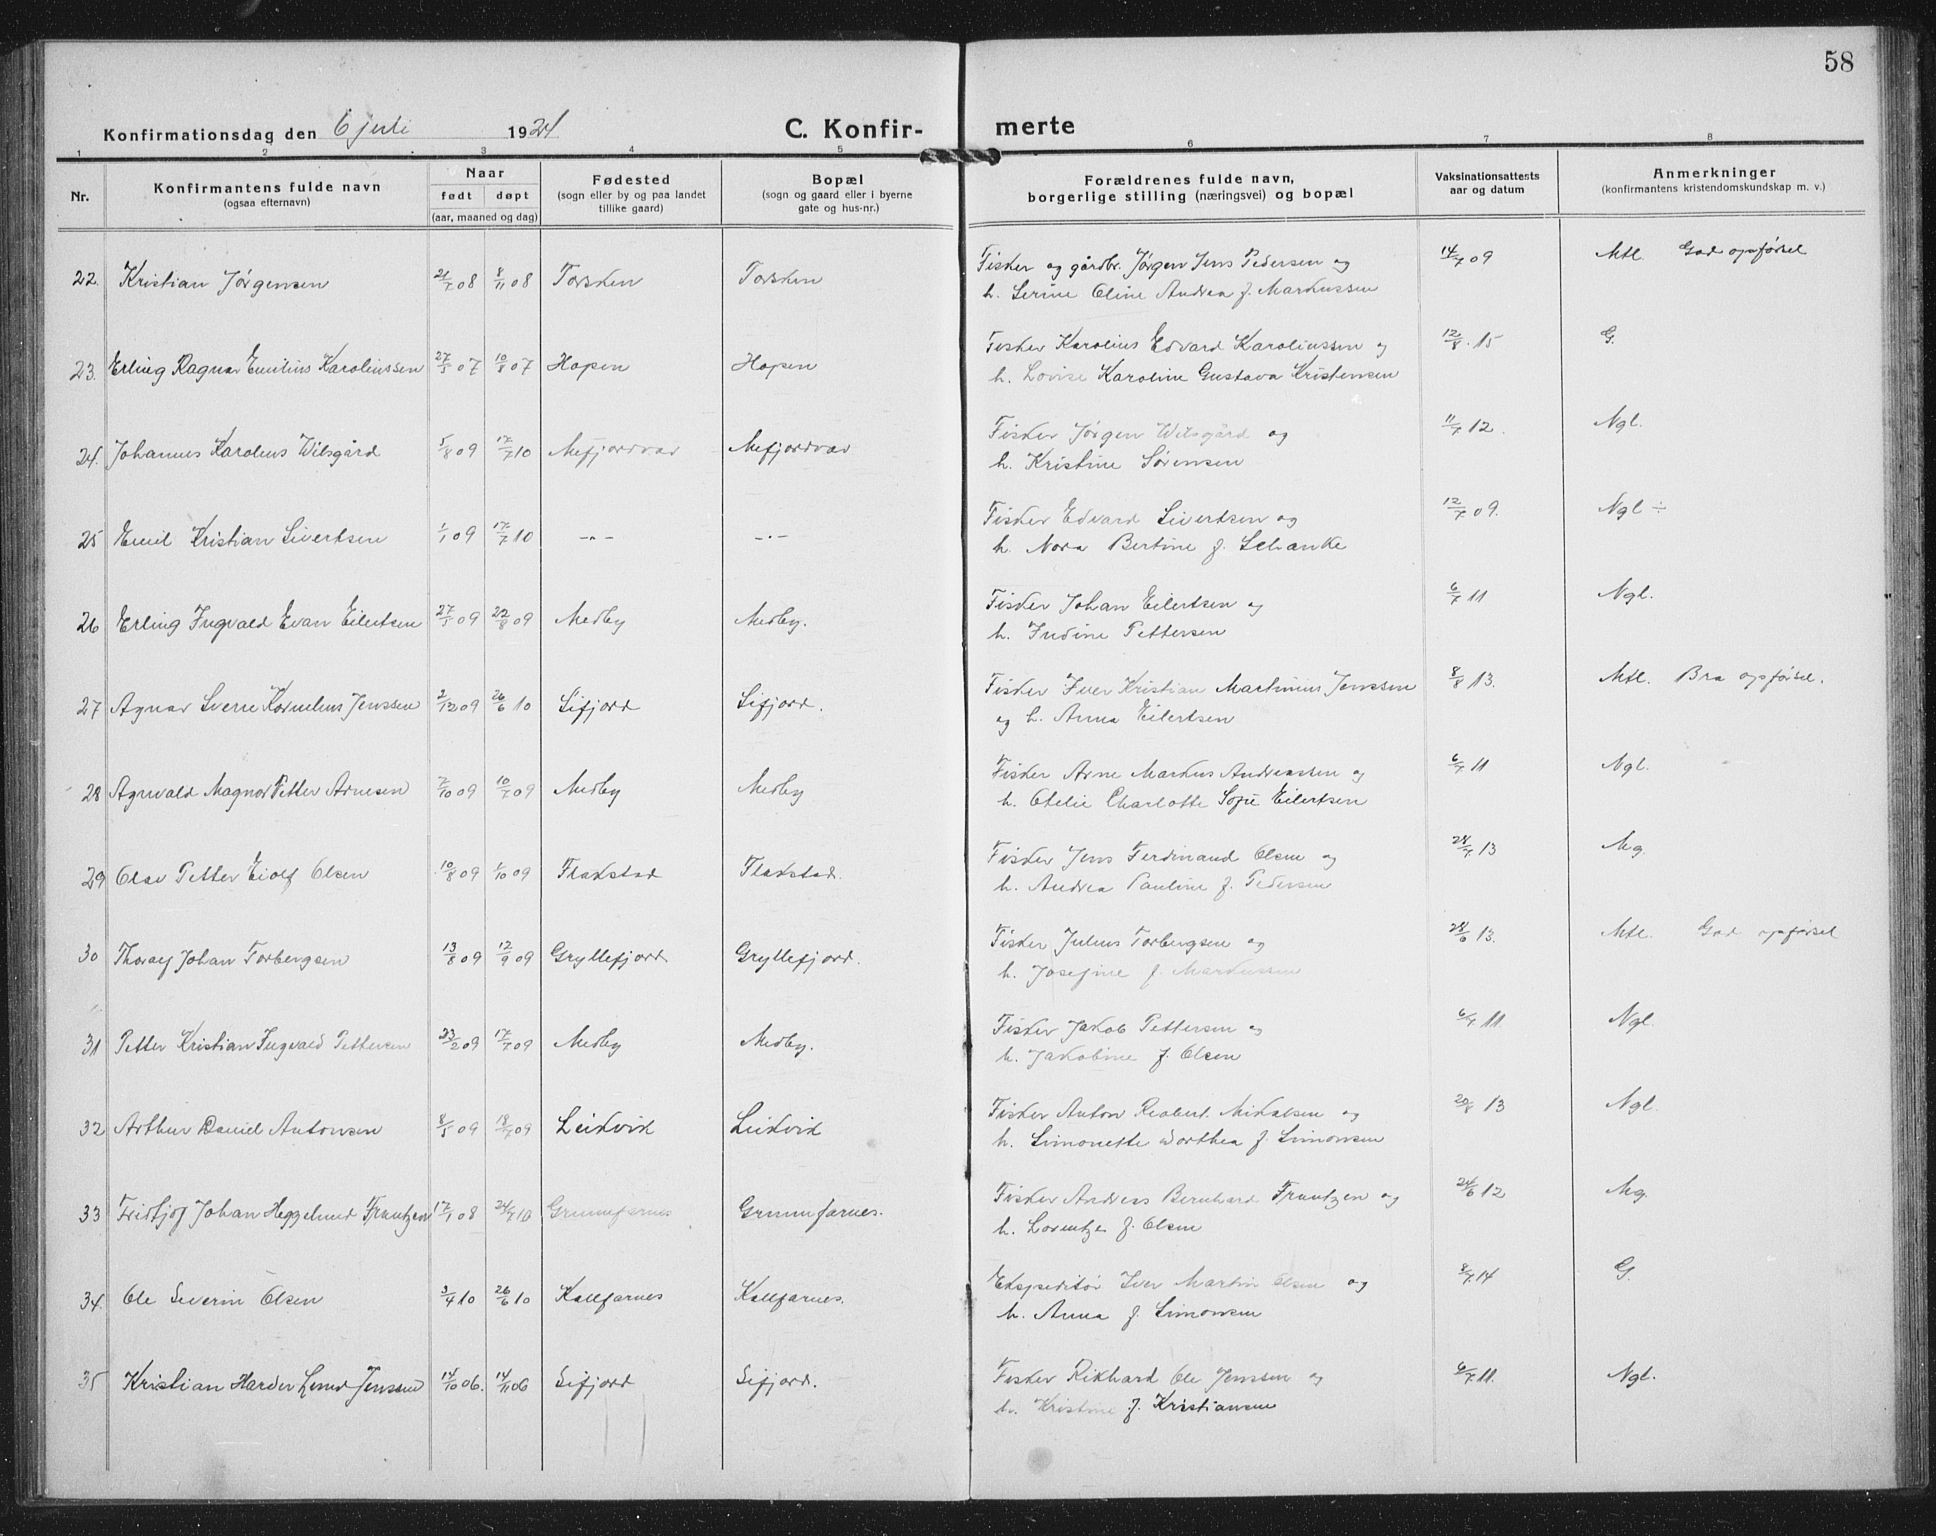 58
Konfirmationsdag den 6 juli 1924 C. Konfir- merte
1 2 3 4 5 6 7 8
Nr. Konfirmantens fulde navn (ogsaa efternavn) Naar født døpt (aar, maaned og dag) Fødested (sogn eller by og paa landet tillike gaard) Bopæl (sogn og gaard eller i byerne gate og hus-nr.) Forældrenes fulde navn, borgerlige stilling (næringsvei) og bopæl Vaksinationsattests aar og datum Anmerkninger (konfirmantens kristendomskundskap m. v.)
22. Kristian Jørgensen 21/7 08 8/11 08 Torsken Torsken Fisker og gårdbr. Jørgen Jens Pedersen og 14/7 09 Mtl. God opførsel
h. Serine Oline Andrea f. Markussen
23. Erling Ragnar Emilius Karolinssen 27/5 07 10/8 07 Hopen Hopen Fisker Karolius Edvard Karolinssen og 12/8. 15 G.
h. Lovise Karoline Gustava Kristensen
24. Johannes Karolius Wilsgård 5/8 09 17/7 10 Mefjordvær Mefjordvær Fisker Jørgen Wilsgård og 11/7 12. Ngl.
h. Kristine Sørensen
25 Emil Kristian Sivertsen 1/1 09 17/7 10 -"- -"- Fisker Edvard Sivertsen og 12/7 09. Ngl ÷
h. Nora Bertine f. Schanke
26 Erling Ingvald Evan Eilertsen 27/5 09 22/8 09 Medby Medby. Fisker Johan Eilertsen og 6/7 11 Ngl.
h. Indine Pettersen
27 Agnar Sverre Kornelius Jenssen 2/12 09 26/6 10 Sifjord Sifjord. Fisker Iver Kristian Martinius Jenssen 8/8 13. Mtl. Bra opførsel.
og h. Anna Eilertsen
28 Agnvald Magnor Petter Arnesen 2/10 09 10/7 09 Medby Medby Fisker Arne Markus Andreassen og 6/7 11 Ngl.
h. Otelie Charlotte Sofie Eilertsen
29 Olav Petter Eiolf Olsen 10/8 09 1/10 09 Flakstad Flakstad. Fisker Jens Ferdinand Olsen og 24/7 13 Mg.
h. Andrea Pauline f. Pedersen
30 Thoralf Johan Torbergsen 13/8 09 12/9 09 Gryllefjord Gryllefjord. Fisker Julius Torbergsen og 28/6 13. Mtl. God opførsel
h. Josefine f. Markussen
31 Petter Kristian Ingvald Pettersen 23/2 09 17/7 09 Medby Medby. Fisker Jakob Pettersen og 6/7 11. Ngl.
h. Jakobine f. Olsen
32 Arthur Daniel Antonsen 8/5 09 18/7 09 Leikvik Leikvik Fisker Anton Reabert. Mikalsen og 20/8 13 Ngl.
h. Simonette Dorthea f. Simonsen
33 Fritjof Johan Heggelund Frantzen 17/1 08 24/7 10 Grunnfarnes Grunnfarnes. Fisker Andreas Bernhard Frantzen og 24/6 12 Mg.
h. Lorentze f. Olsen
34. Ole Severin Olsen 3/4 10 26/6 10 Kalfarnes Kalfarnes. Ekspeditør Iver Martin Olsen og 8/7 14 G.
h. Anna f. Simonsen
35 Kristian Harder Lund Jenssen 15/10 06. 14/11 06 Sifjord Sifjord. Fisker Rikhard Ole Jenssen og 6/7. 11. Ngl.
h. Kristine f. Kristiansen